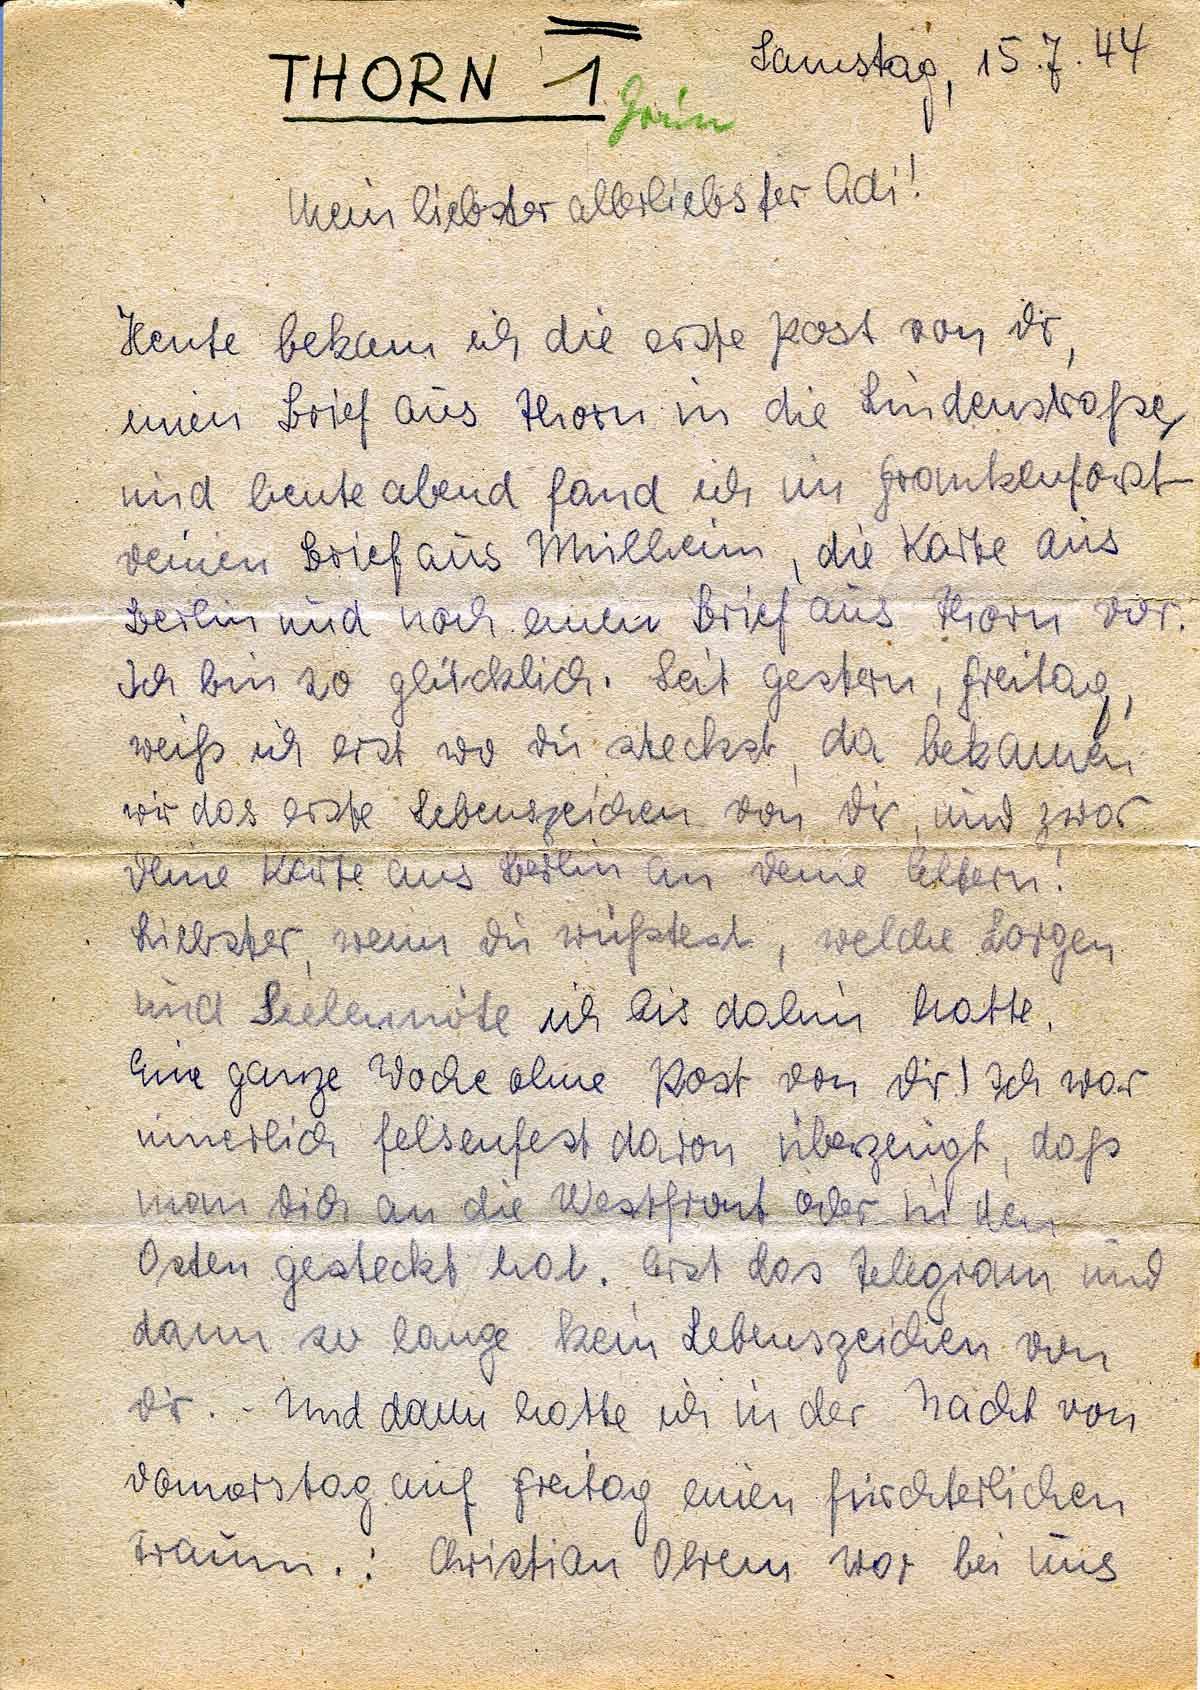 THORN 1
Samstag, 15.7.44
Mein liebster allerliebster Adi!
Heute bekam ich die erste Post von dir,
einen Brief aus Thorn in die Lindenstraße,
und heute abend fand ich im Frankenforst
deinen Brief aus Mülheim, die Karte aus
Berlin und noch einen Brief aus Thorn vor.
Ich bin so glücklich. Seit gestern, Freitag,
weiß ich erst wo du steckst, da bekamen
wir das erste Lebenszeichen von dir, und zwar
deine Karte aus Berlin an deine Eltern!
Liebster, wenn du wüßtest, welche Sorgen
und Seelennöte ich bis dahin hatte.
Eine ganze Woche ohne Post von dir! Ich war
innerlich felsenfest davon überzeugt, daß
man dich an die Westfront oder in den
Osten gesteckt hat. Erst das Telegram und
dann so lange kein Lebenszeichen von
dir. - Und dann hatte ich in der Nacht von
Donnerstag auf Freitag einen fürchterlichen
Traum.: Christian war bei uns